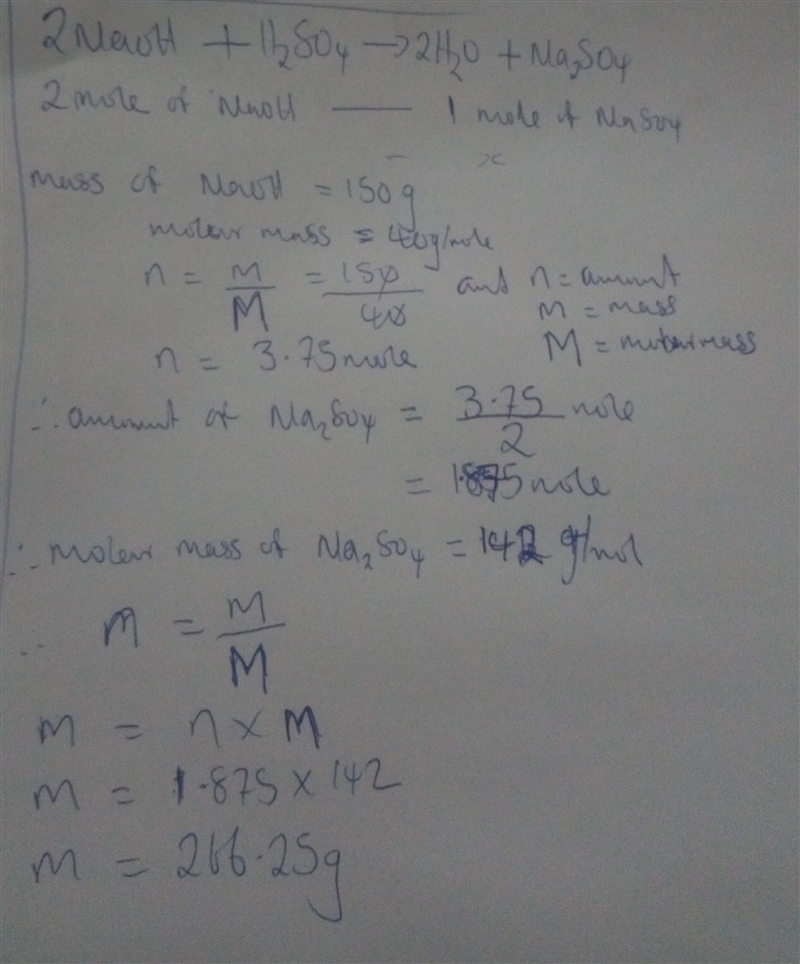 2NaOH + H₂SO₄ → 2H₂O + Na₂SO₄
2 mole of NaOH —— 1 mole of NaSO4
– x
mass of NaOH = 150g
molar mass = 40g/mole
n = m/M = 150/40 and n = amount
m = mass
n = 3.75 mole M = molar mass
∴ amount of Na₂SO4 = 3.75/2 mole
= 1.875 mole
∴ molar mass of Na₂SO₄ = 142 g/mol
∴ n = m/M
m = n × M
m = 1.875 × 142
m = 266.25g